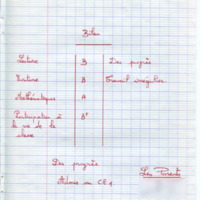 Bilan
Lecture B Des progrès
Ecriture B Travail irrégulier
Mathématiques A
Participation à B+
la vie de la
classe
Des progrès
Admis au CE1
Les Parents